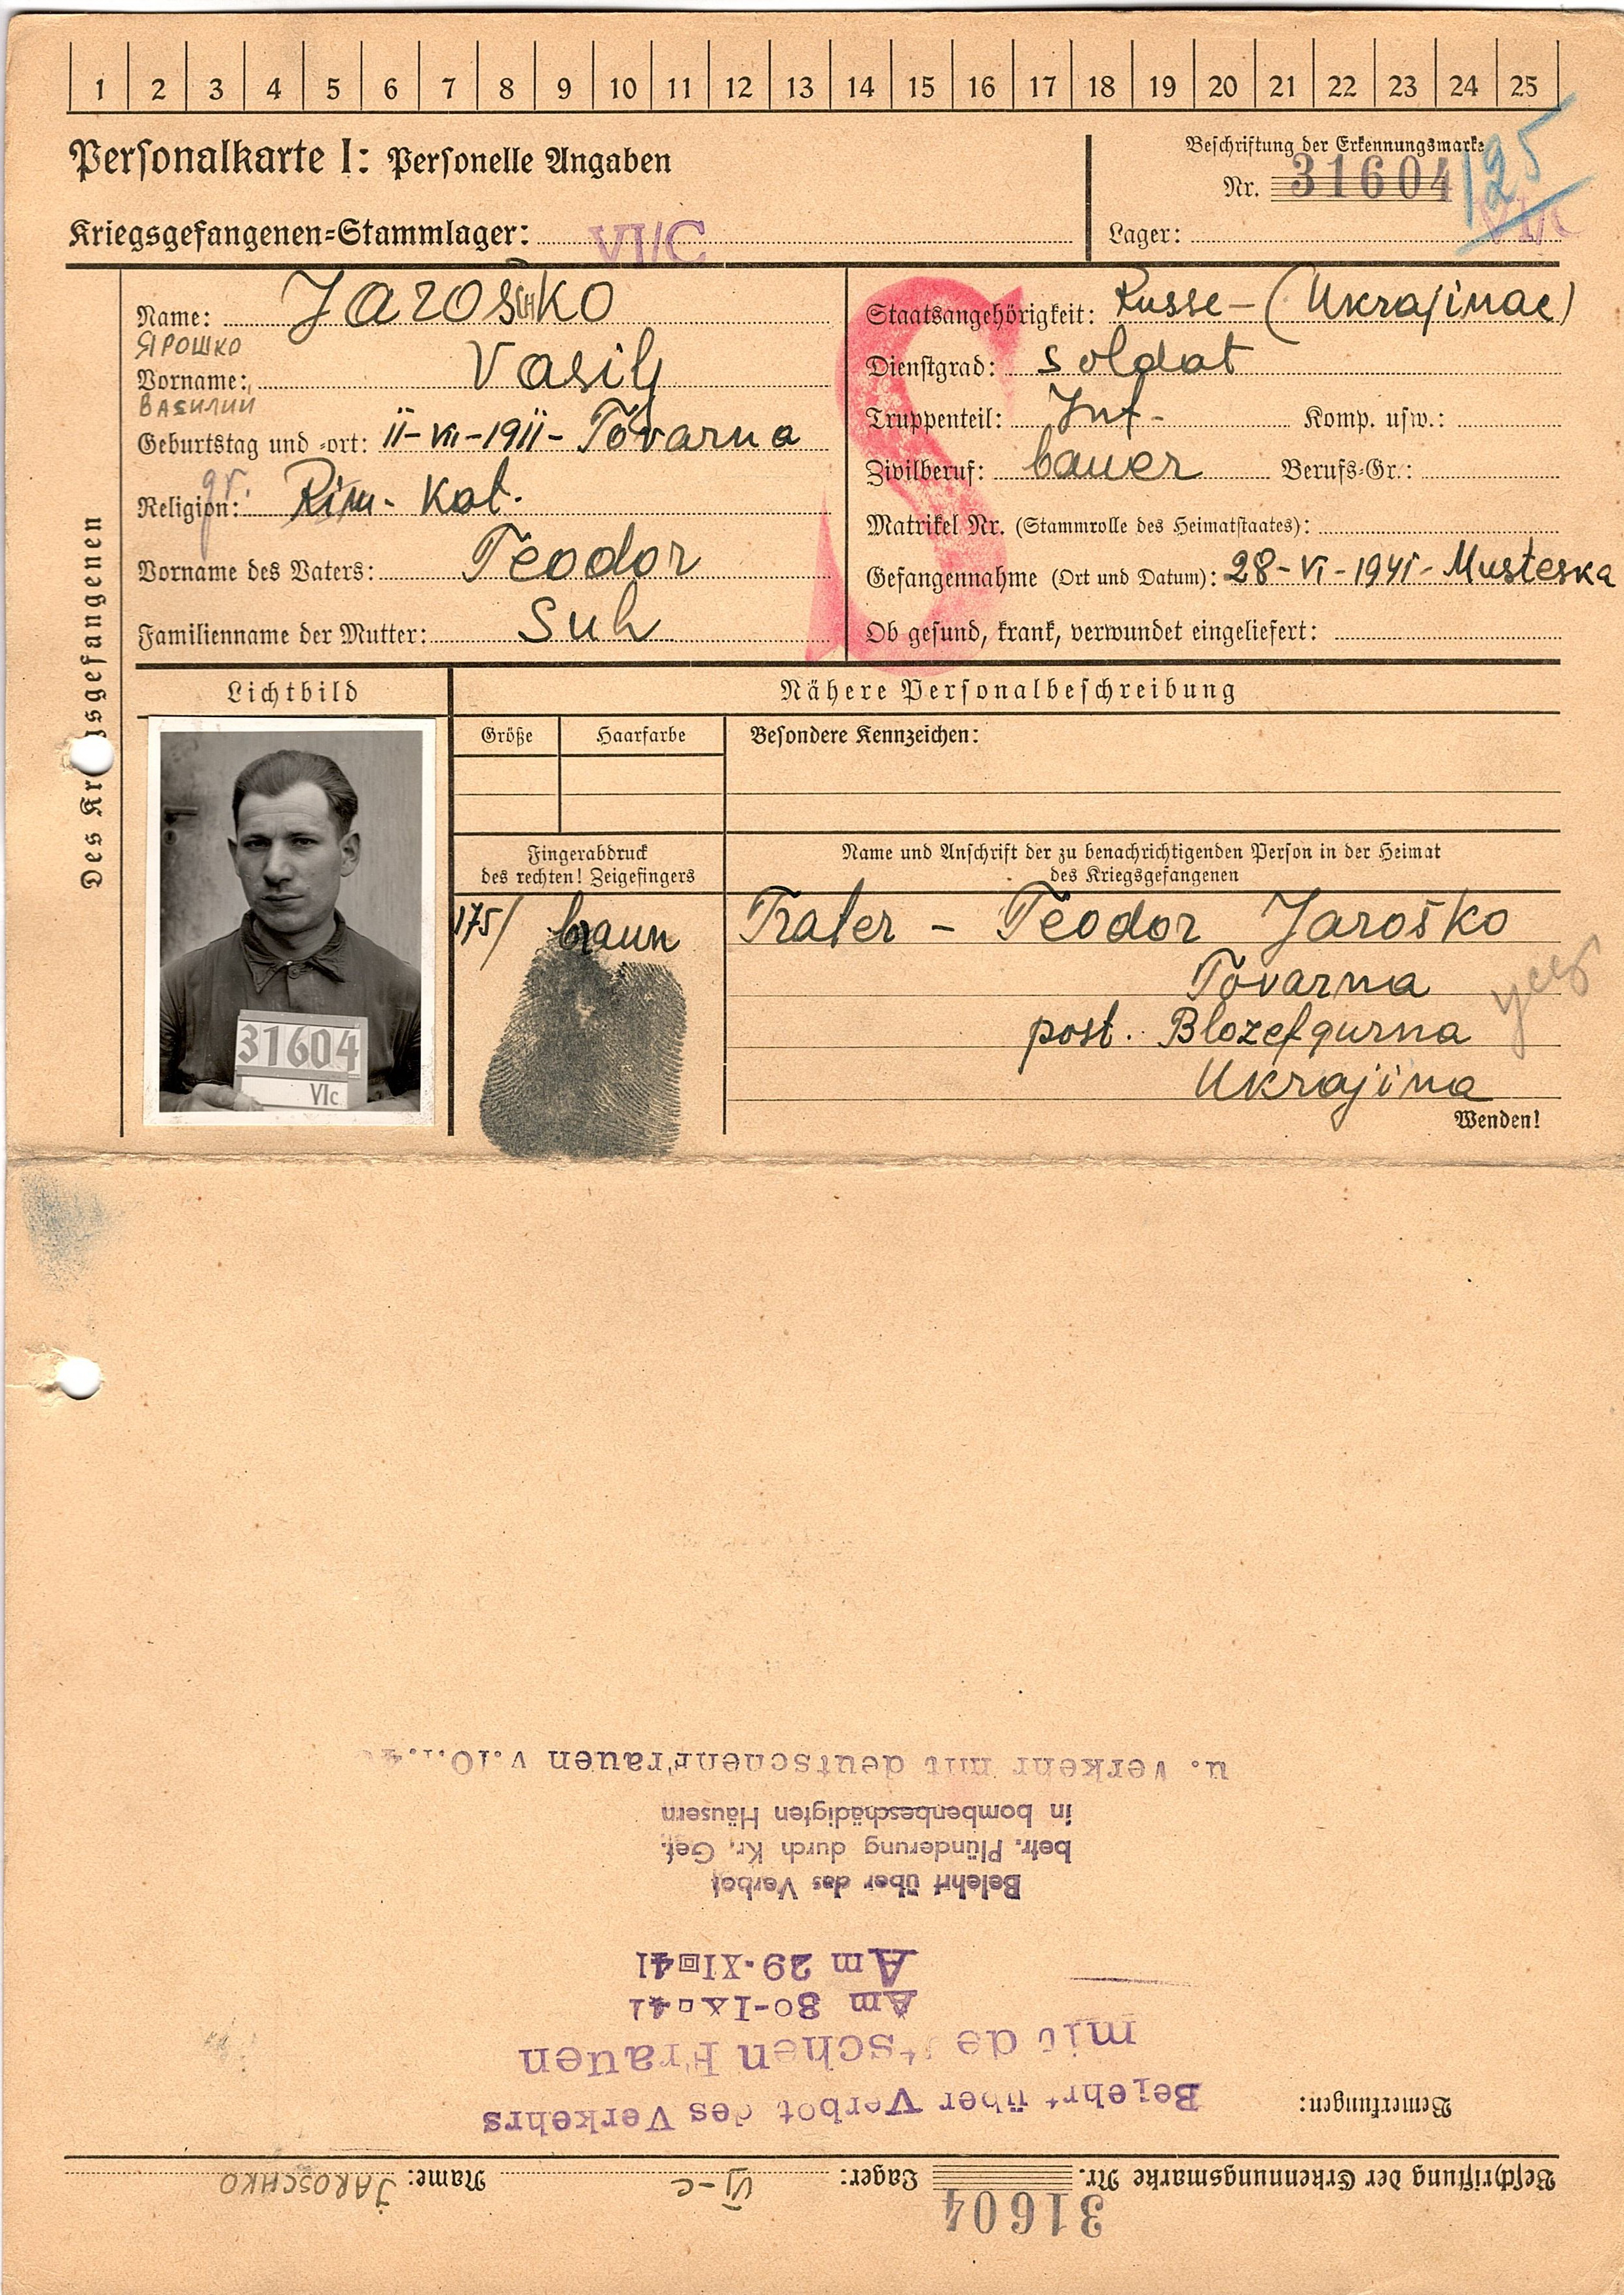 1 2 3 4 5 6 7 8 9 10 11 12 13 14 15 16 17 18 19 20 21 22 23 24 25
Personalkarte I: Personelle Angaben
Beschriftung der Erkennungsmarke
Nr. 31604
125
Kriegsgefangenen-Stammlager: VI/C
Lager: VI/C
Des Kr sgefangenen
Name: Jaroschko
ЯРОШКО
Vorname: Vasilj
ВАСИЛИЙ
Geburtstag und -ort: 11-VII-1911- Tovarna
gr.
Religion: Rim- Kat.
Vorname des Vaters: Teodor
Familienname der Mutter: Suh
S
Staatsangehörigkeit: Russe-(Ukrajinac)
Dienstgrad: Soldat
Truppenteil: Inf- Komp. usw.:
Zivilberuf: bauer Berufs-Gr.:
Matrikel Nr. (Stammrolle des Heimatstaates):
Gefangennahme (Ort und Datum): 28-VI-1941- Musteska
Ob gesund, krank, verwundet eingeliefert:
Lichtbild
Nähere Personalbeschreibung
Größe Haarfarbe Besondere Kennzeichen:
Fingerabdruck
des rechten! Zeigefingers
Name und Anschrift der zu benachrichtigenden Person in der Heimat
des Kriegsgefangenen
175/ braun
31604
VIc
Frater - Teodor Jaroško
Tovarna
post. Blozefgurna
Ukrajina
Wenden!
Beschriftung der Erkennungsmarke Nr. 31604 Lager: VI-C Name: JAROSCHKO
Bemerkungen:
Belehrt über Verbot des Verkehrs
mit de tschen Frauen
Am 30-IX-41
Am 29.XI 41
Belehrt über das Verbot
betr. Plünderung durch Kr. Gef.
in bombenbeschädigten Häusern
u. Verkehr mit deutschenFrauen v.10.1.4